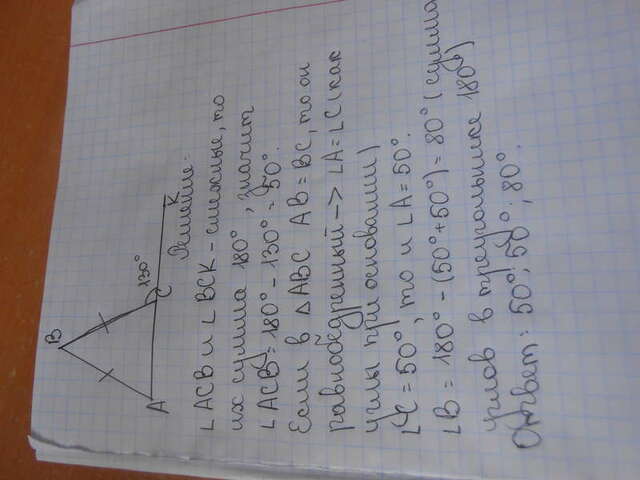 B
130°
A
C
K
Решение:
∠ACB и ∠BCK - смежные, то
их сумма 180°, значит
∠ACB = 180° - 130° = 50°.
Если в △ABC AB = BC, то он
равнобедренный -> ∠A = ∠C (как
углы при основании)
∠C = 50°, то и ∠A = 50°.
∠B = 180° - (50° + 50°) = 80° (сумма
углов в треугольнике 180°)
Ответ: 50°; 50°; 80°.